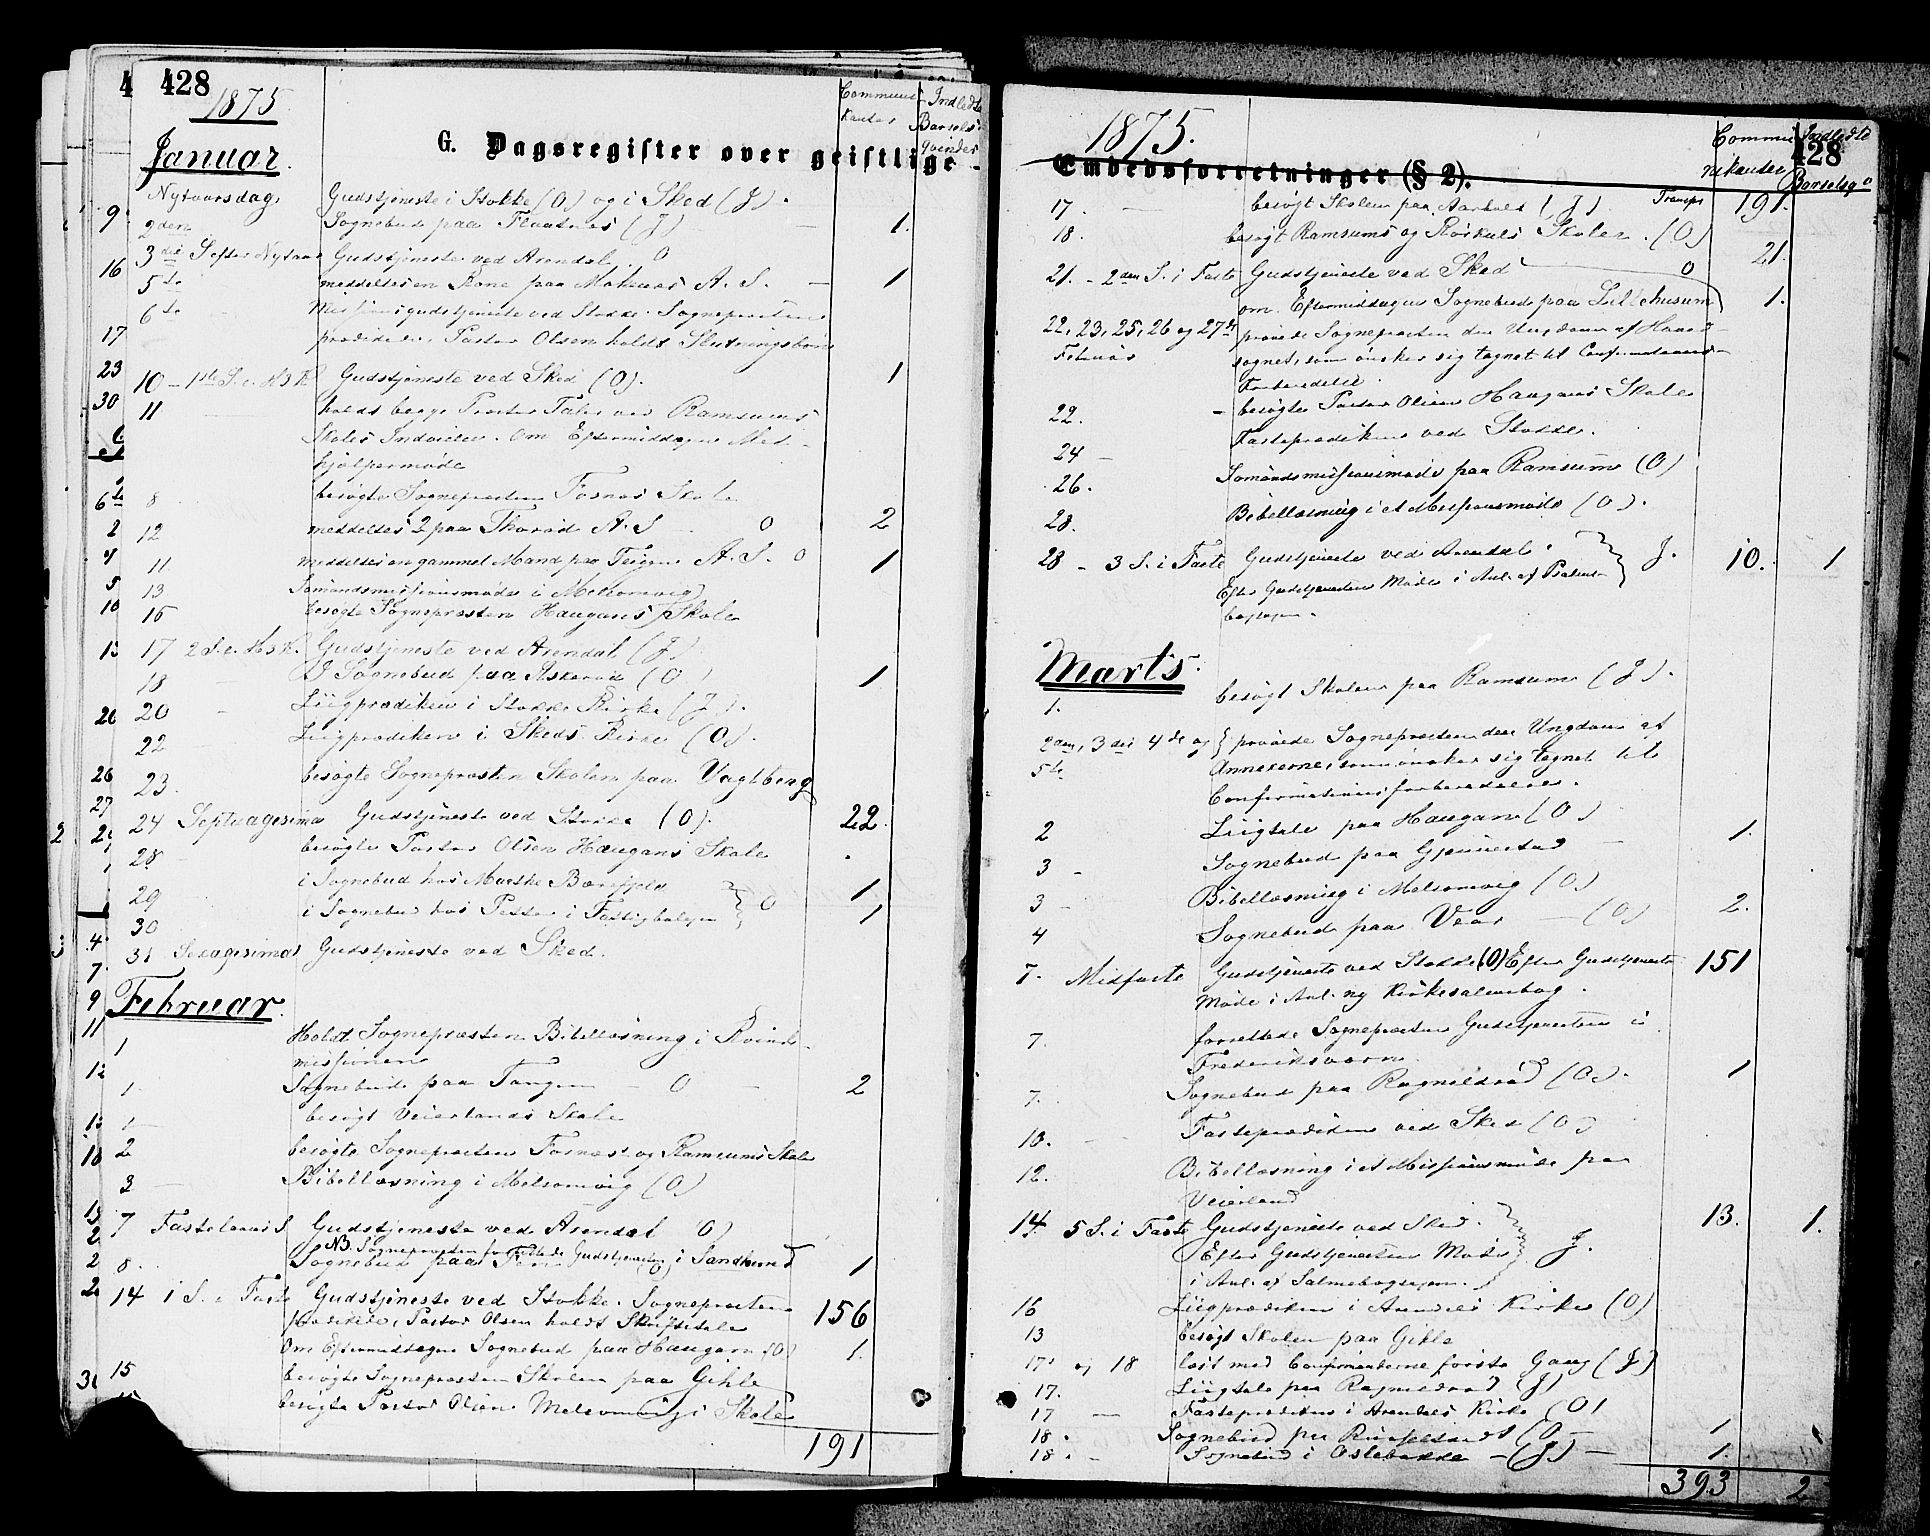 428
1875
Communi-
kanter
Indledte
Barsels-
qvinder
G. Dagsregister over geistlige
Januar.
Nytaarsdag Gudstjeneste i Stokke (O) og i Sked (J).
2den Sognebud paa Flaatnes (J) 1.
3die S. efter Nytaar Gudstjeneste ved Arendal. O
5te meddeltes en Kone paa A. S. 1
6te Missionsgudstjeneste ved Stokke. Sognepræsten
prædikede, Pastor Olsen holdt Slutningsbøn
10 - 1ste S. e. H3K Gudstjeneste ved Sked (O). 1
11 holdt begge Præster Taler ved Ramsums
Skoles Indvielse. Om Eftermiddagen Med-
hjælpermøde
8 besøgte Sognepræsten Fosnæs Skole
12 meddeltes 2 paa A. S. O 2
11 meddeltes en gammel Mand paa Teigen A. S. O 1
13 Sømandsmissionsmøde i Melsomvig
15 besøgte Sognepræsten Haugans Skole
17 2 S. e. H3K. Gudstjeneste ved Arendal (J).
18 Sognebud paa Askerød (O) 1
20 Liigprædiken i Stokke Kirke (J).
22 Liigprædiken i Skeds Kirke (O).
23. besøgte Sognepræsten Skolen paa Vagtberg
24 Septuagesima Gudstjeneste ved Stokke (O). 22
28 besøgte Pastor Olsen Haugans Skole
29 i Sognebud hos Marthe Bærefjeld 1
30 i Sognebud hos Peder i Fattigboligen O 1
31 Sexagesima Gudstjeneste ved Sked.
Februar.
1 Holdt Sognepræsten Bibellæsning i Kvinde-
missionen
1 Sognebud paa Tangen - O - 2
1 besøgt Veierlands Skole
2 besøgte Sognepræsten Fosnæs og Ramsums Skole
3 Bibellæsning i Melsomvig (O)
7 Fastelavns S. Gudstjeneste ved Arendal O)
NB. Sognepræsten forrettede Gudstjenesten i Sandherred
8. Sognebud paa Fen (O) 1
14 1 S. i Faste Gudstjeneste ved Stokke. Sognepræsten
prædikede, Pastor Olsen holdt Skriftetale 156
Om Eftermiddagen Sognebud paa Haugan (O) 1.
15 besøgte Sognepræsten Skolen paa Gihle
besøgte Pastor Olsen Melsomvigs Skole
191
1875.
Commu-
nikanter
Indledte
Barselsq.
428
Embedsforretninger (§ 2).
17. besøgt Skolen paa Aarholt (J) Transpt 191.
18. besøgt Ramsums og Rørkuls Skoler. (O)
21. - 2den S. i Faste Gudstjeneste ved Sked O 21.
om Eftermiddagen Sognebud paa Lillehusum 1.
22, 23, 25, 26 og 27de prøvede Sognepræsten den Ungdom af Hoved-
Februar sognet, som ønsker sig tegnet til Confirmations-
forberedelse.
22. besøgte Pastor Olsen Haugans Skole
24 - Fasteprædiken ved Stokke.
26. Sømandsmissionsmøde paa Ramsum (O)
28. Bibellæsning i et Missionsmøde (O).
28 - 3 S. i Faste Gudstjeneste ved Arendal. J. 10. 1
Efter Gudstjenesten Møde i Anl. af Psalme-
bogsagen.
Marts.
1. besøgt Skolen paa Ramsum (J).
2den, 3die 4de og prøvede Sognepræsten den Ungdom af
5te Annexerne, som ønsker sig tegnet til
Confirmationsforberedelse.
2 Liigtale paa Haugan (O)
3 - Sognebud paa Gjennestad 1.
3 - Bibellæsning i Melsomvig (O)
4 Sognebud paa Vear - (O) 2.
7. Midfaste Gudstjeneste ved Stokke (O) Efter Gudstjenesten 151
Møde i Anl. ny Kirkesalmebog.
7. forrettede Sognepræsten Gudstjenesten i
Frederiksværn.
7. Sognebud paa Ragnildrød (O). 1
10. Fasteprædiken ved Sked (O)
12. Bibellæsning i et Missionsmøde paa
Veierland
14. 5 S. i Faste Gudstjeneste ved Sked. 13. 1.
Efter Gudstjenesten Møde J.
i Anl. af Salmebogsagen.
16 Liigprædiken i Arendals Kirke (O)
13 besøgt Skolen paa Gihle
17. og 18 læst med Confirmanderne første Gang (J)
17. Liigtale paa Ragnildrød (J)
17 - Fasteprædiken i Arendals Kirke (O)
18. Sognebud paa (O - 1
18. - Sognebud i Oslebakke - (J) - 1.
393 2